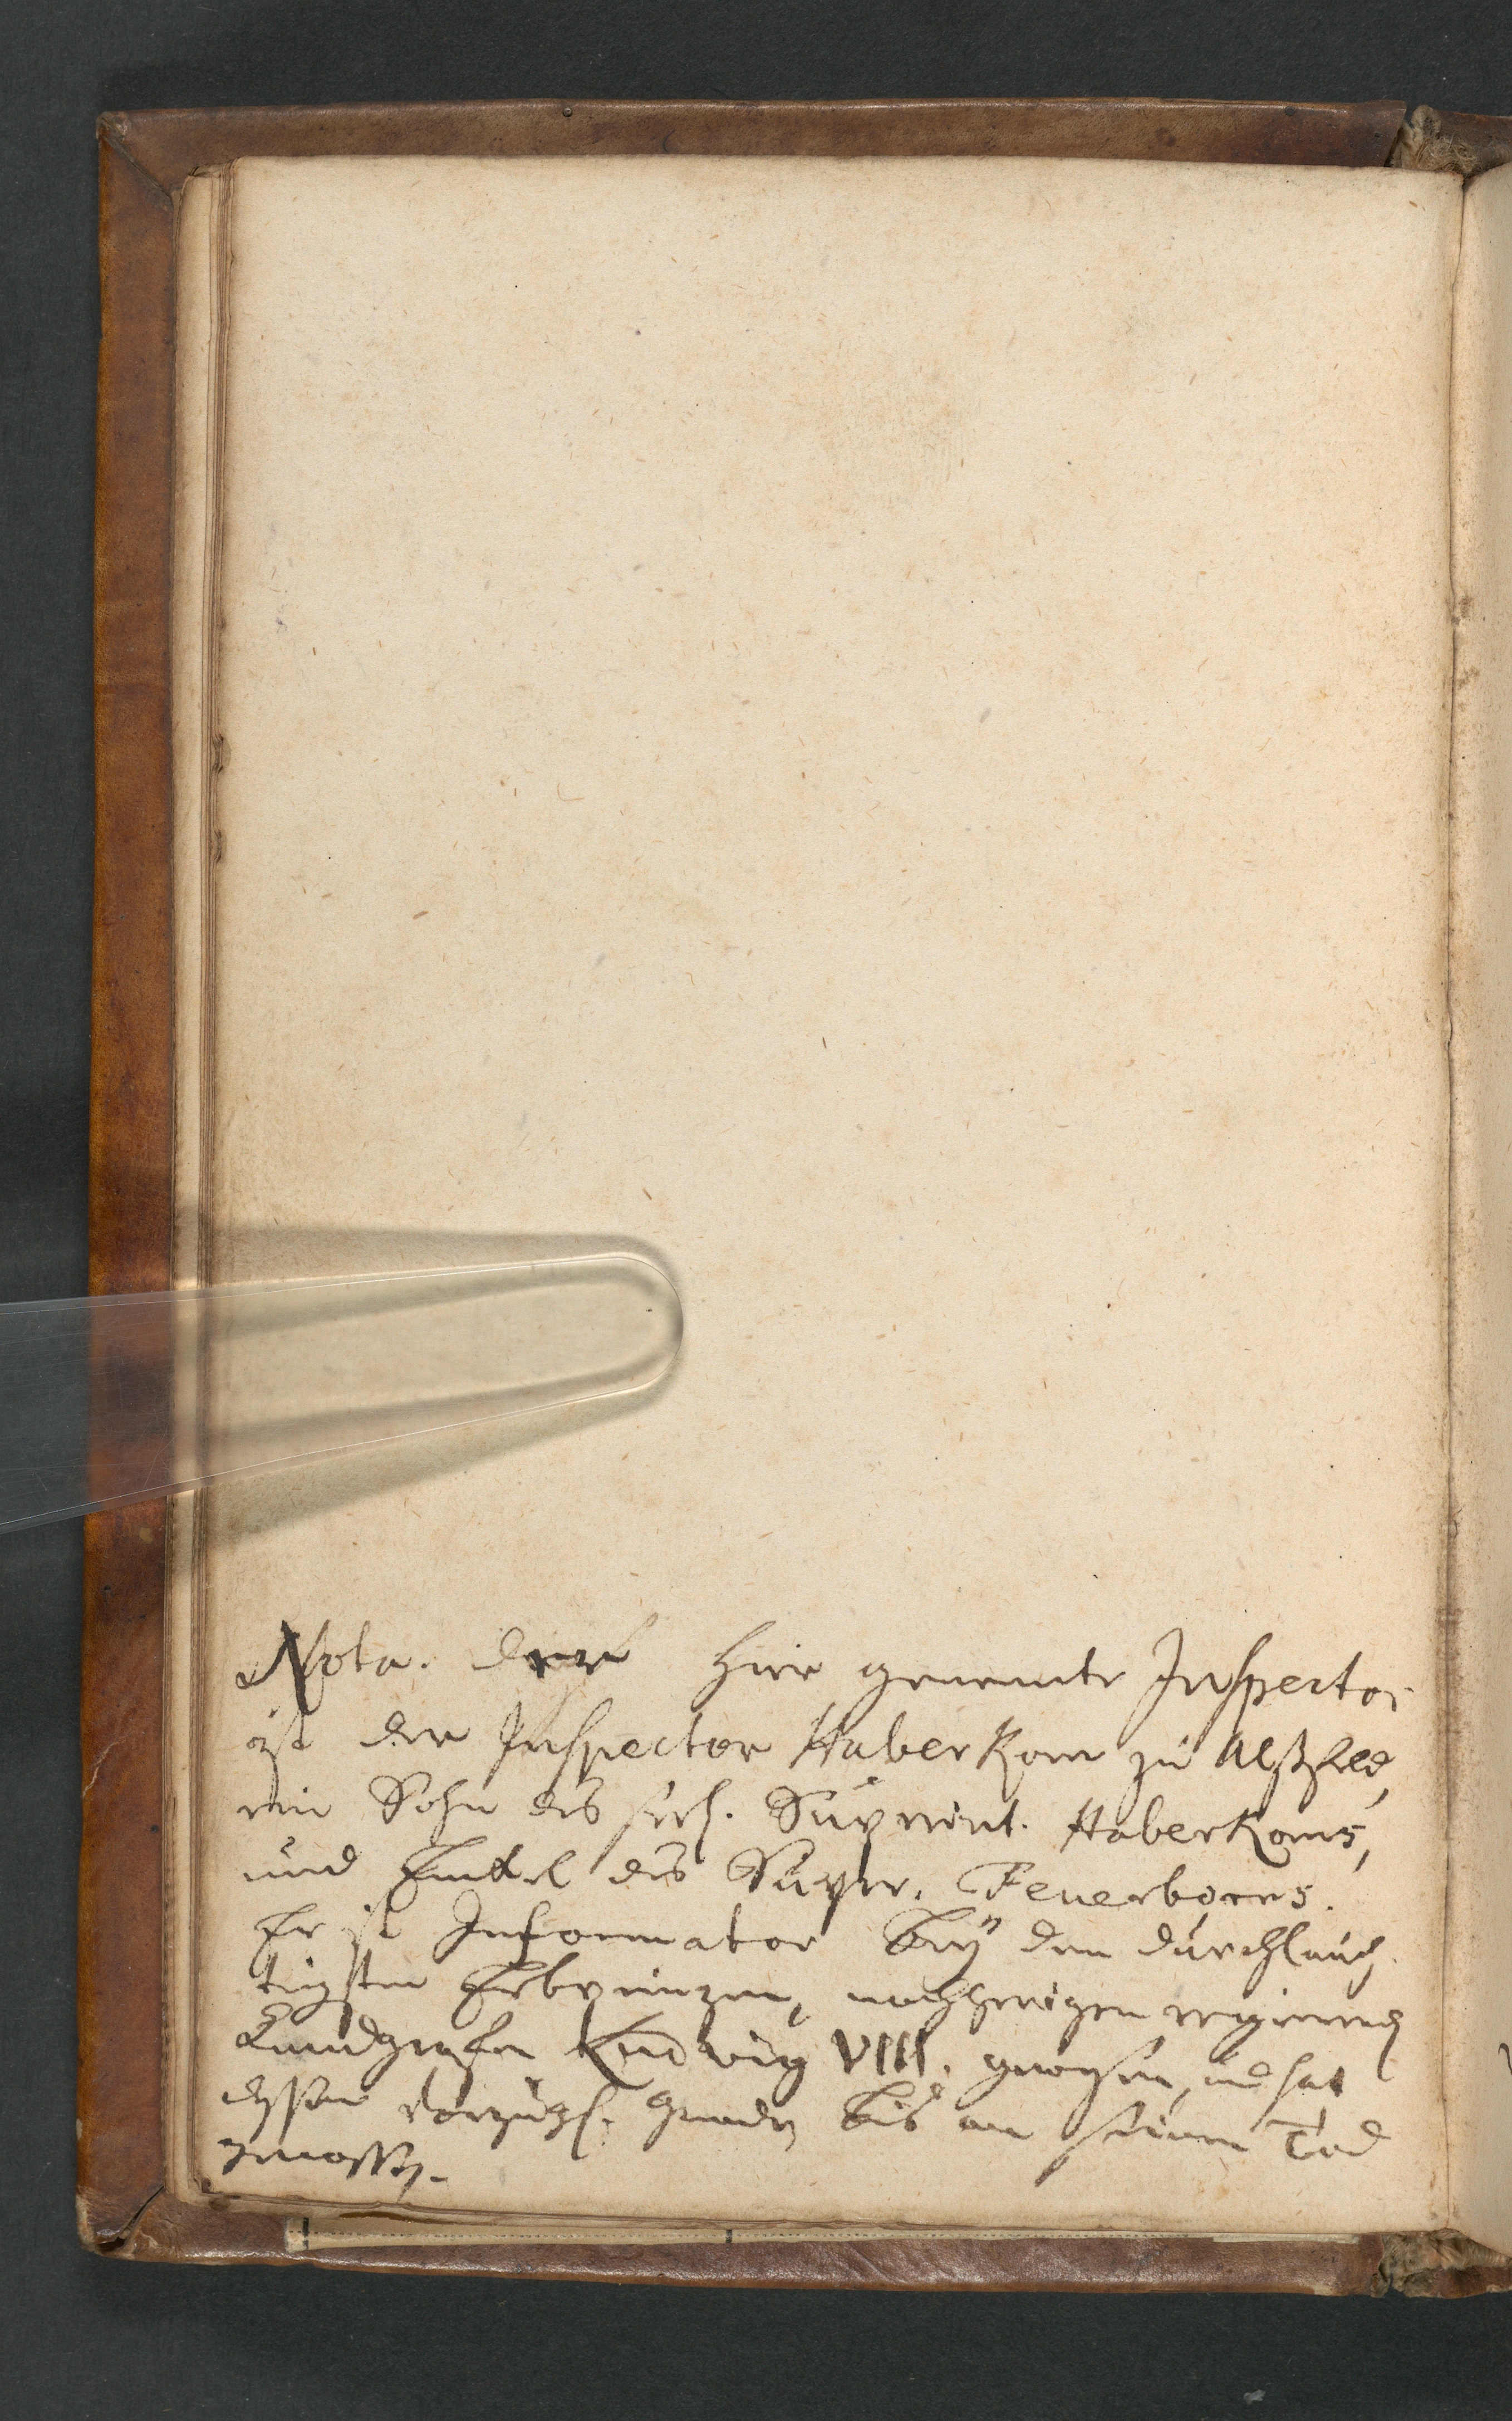 Nota. der hier genennte Inspector
ist der Inspector Haberkorn zu Alßfeld,
ein Sohn des seel. Superint. Haberkorns,
und Enckel des Super. Feuerborns.
Er ist Informator beÿ dem durchlauch-
tigsten Erbprinzen, nachherigen regierend
Landgrafen Ludwig VIII. gewesen, und hat
dessen vorzügl. Gnade biß an seinen Tod
genossen.